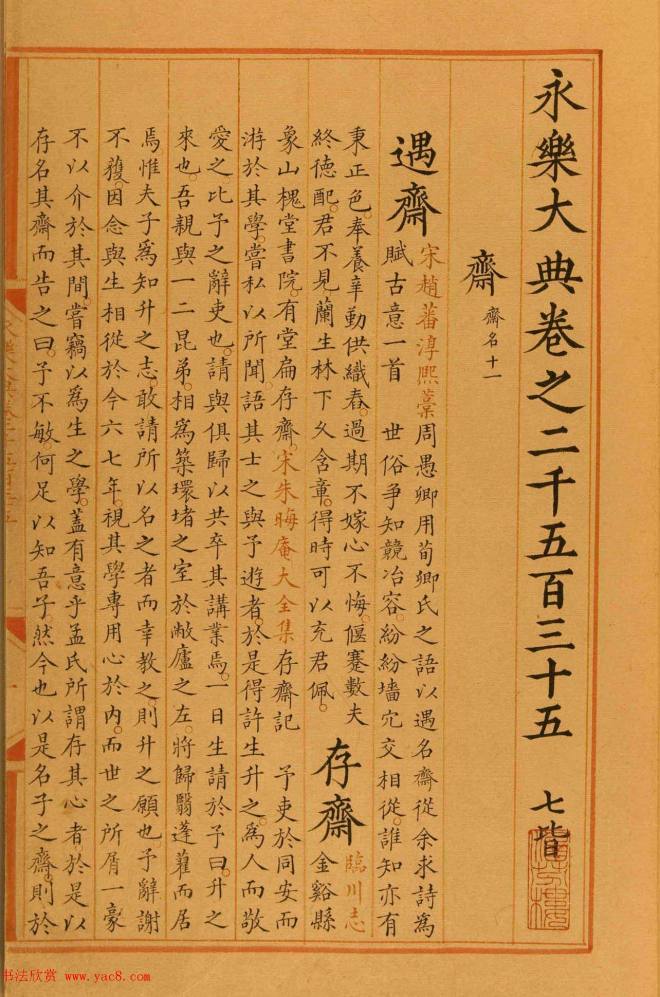 永樂大典卷之二千五百三十五 七皆
齋 齋名十一
遇齋
宋趙蕃淳熙藁 周愚卿用荀卿氏之語以遇名齋從余求詩為
賦古意一首 世俗爭知競冶容。紛紛墻宂交相從。誰知亦有
秉正色。奉養辛勤供織舂。過期不嫁心不悔。偃蹇數夫
終德配。君不見蘭生林下久含章。得時可以充君佩。
存齋
臨川志
金谿縣
象山槐堂書院。有堂扁存齋。宋朱晦庵大全集存齋記 予吏於同安而
游於其學。嘗私以所聞。語其士之與予遊者。於是得許生升之。為人而敬
愛之。比予之辭吏也。請與俱歸以共卒其講業焉。一日生請於予曰。升之
來也。吾親與一二昆弟。相爲築環堵之室於敝廬之左。將歸翳蓬藋而居
焉惟夫子爲知升之志。敢請所以名之者而幸教之。則升之願也。予辭謝
不獲。因念與生相從於今六七年。視其學專用心於內。而世之所屑一豪
不以介於其間。嘗竊以爲生之學。蓋有意乎孟氏所謂存其心者。於是以
存名其齋而告之曰。予不敏。何足以知吾子。然今也以是名子之齋。則於
书法欣赏 www.yac8.com